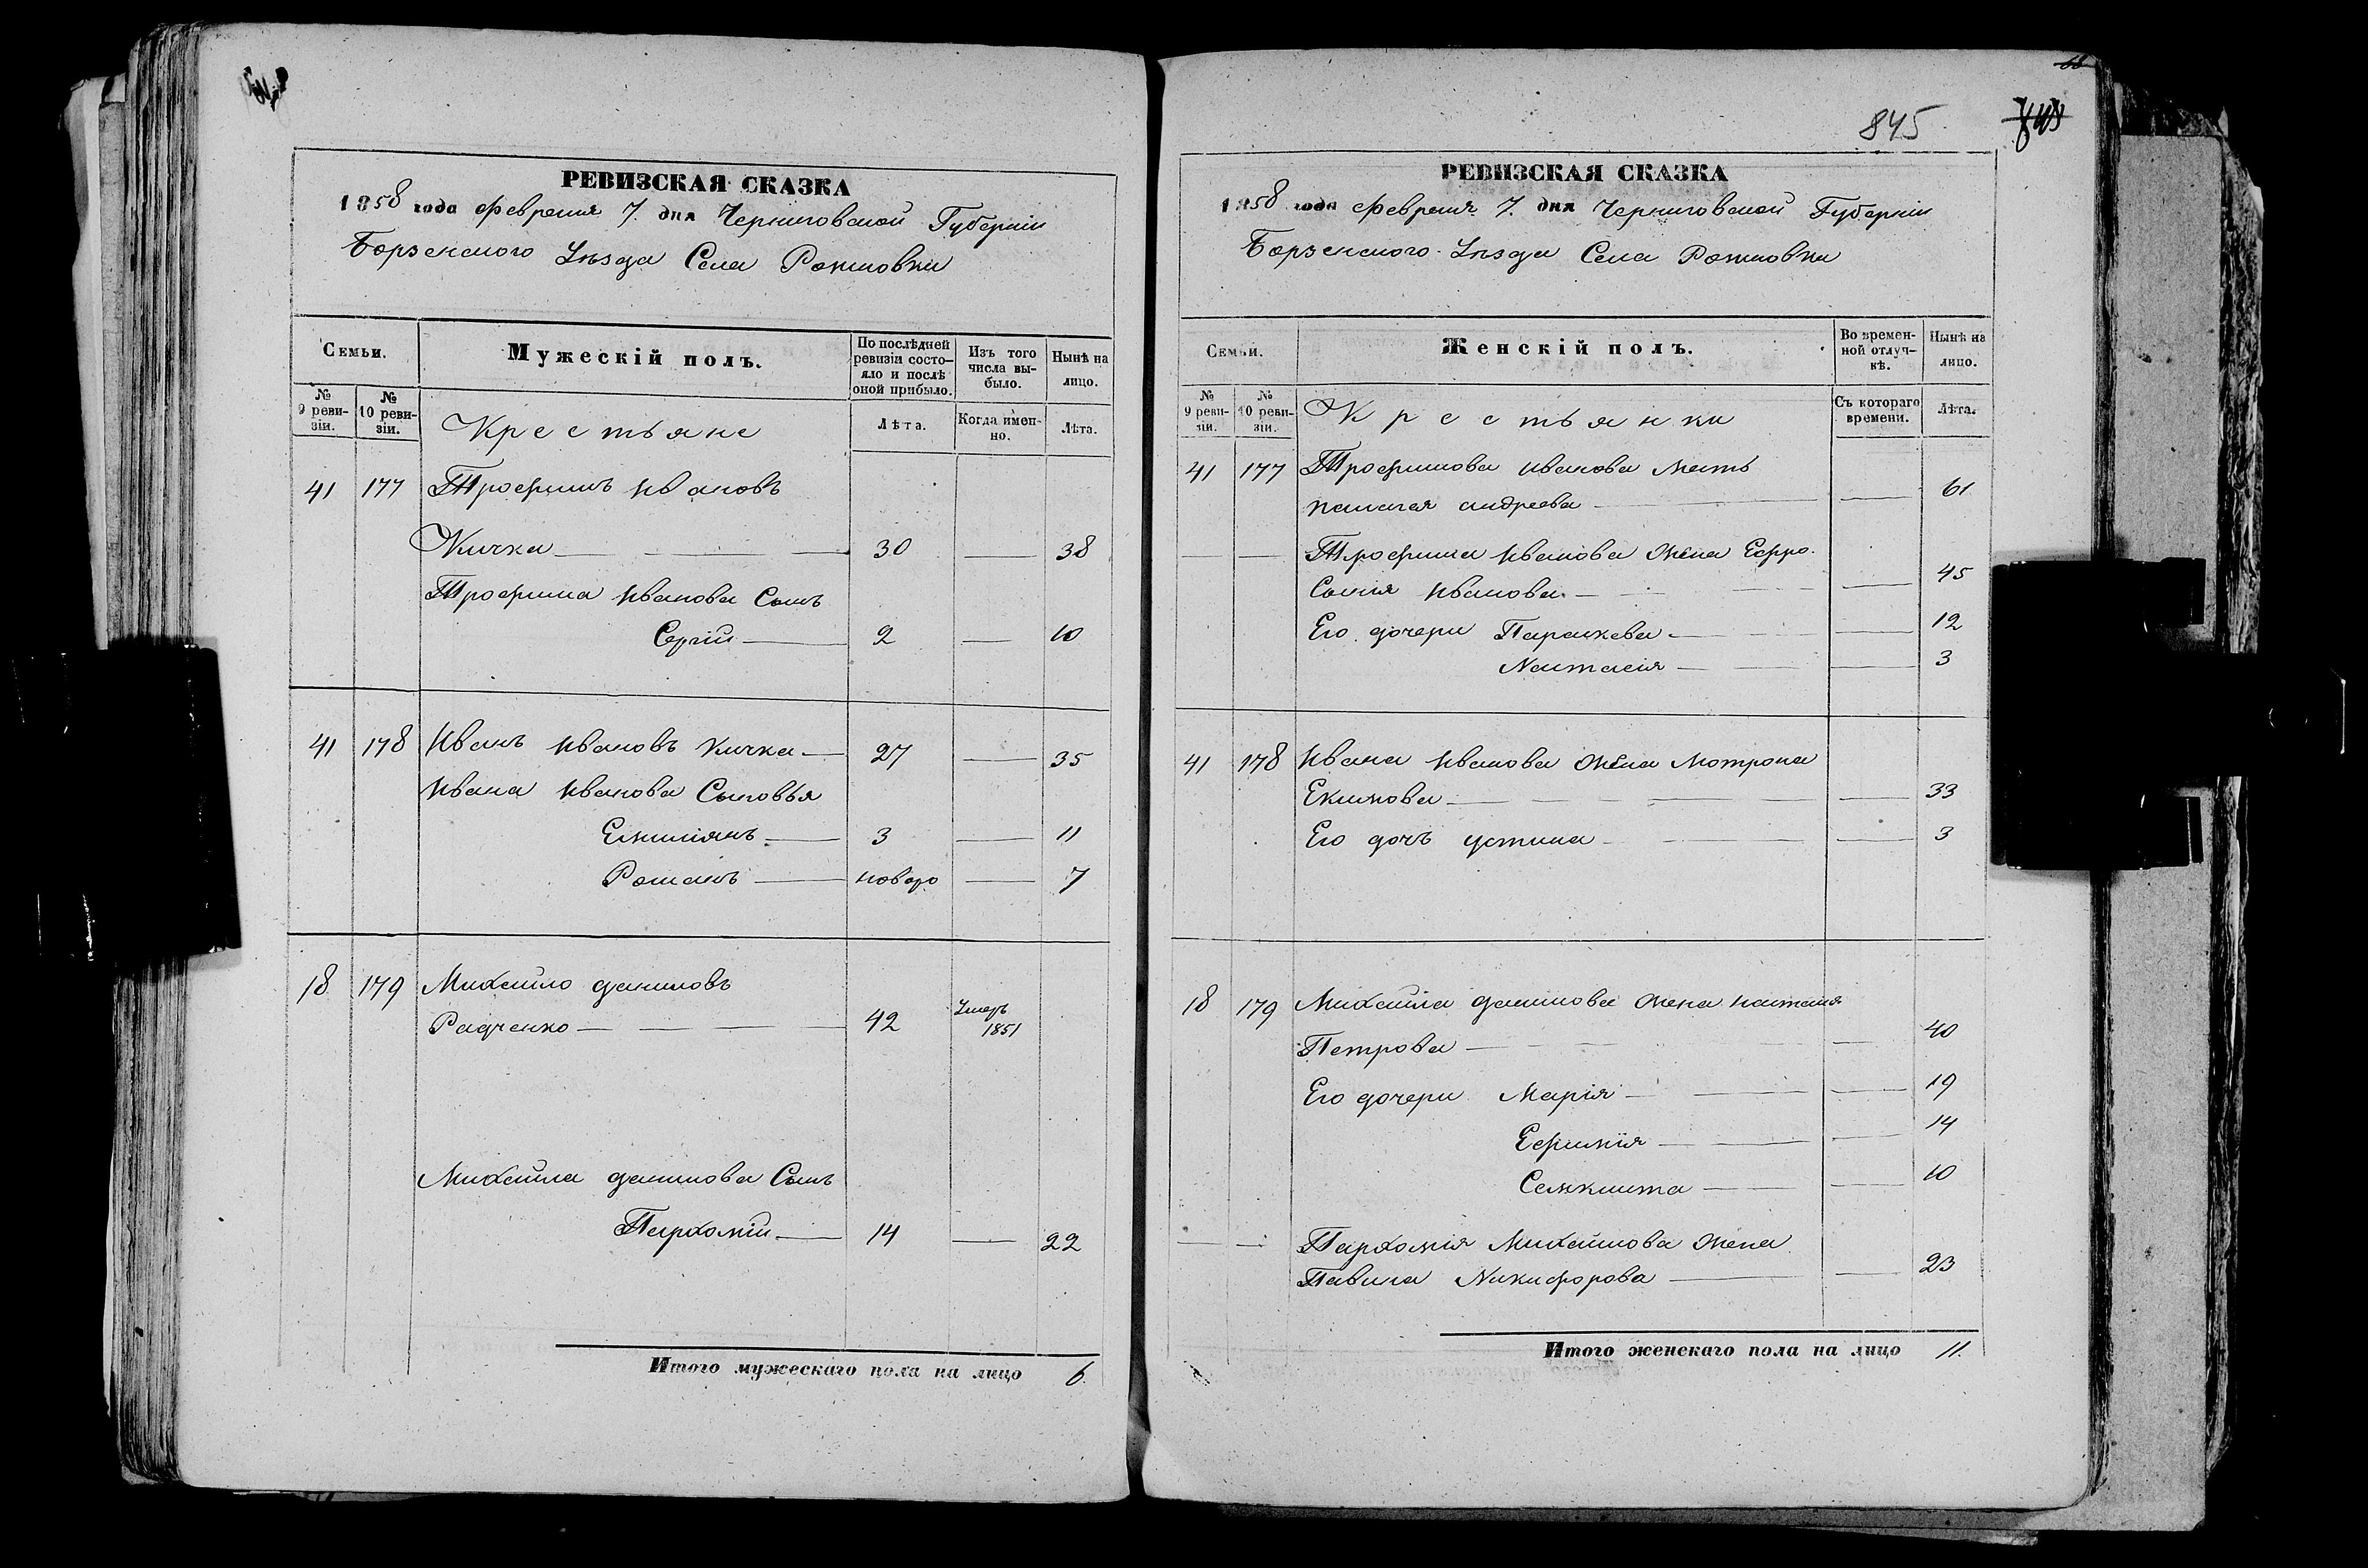 РЕВИЗСКАЯ СКАЗКА
1858 года Февраля 7. дня Черниговской Губерніи
Борзенского Уѣзда Села Рожновки
Семьи.
Мужескій полъ.
По послѣдней ревизіи состояло и послѣ оной прибыло.
Изъ того числа выбыло.
Нынѣ на лицо.
№ 9 ревизіи.
№ 10 ревизіи.
Крестьяне
Лѣта.
Когда именно.
Лѣта.
41 177 Трофимъ Ивановъ
Кичка 30 38
Трофима Иванова Сынъ
Сергій 2 10
41 178 Иванъ Ивановъ Кичка 27 35
Ивана Иванова Сыновья
Емиліянъ 3 11
Романъ новоро 7
18 179 Михайло Даниловъ
Радченко 42 Умеръ 1851
Михайла Данилова Сынъ
Пархомій 14 22
Итого мужескаго пола на лицо 6
845
РЕВИЗСКАЯ СКАЗКА
1858 года Февраля 7. дня Черниговской Губерніи
Борзенского Уѣзда Села Рожновки
Семьи.
Женскій полъ.
Во временной отлучкѣ.
Нынѣ на лицо.
№ 9 ревизіи.
№ 10 ревизіи.
Крестьянки
Съ котораго времени.
Лѣта.
41 177 Трофимова Иванова Мать
Палагея Андреева 61
Трофима Иванова Жена Ефро-
Сынія Иванова 45
Его дочери Параскева 12
Настасія 3
41 178 Ивана Иванова Жена Мотрона
Екимова 33
Его дочь Устина 3
18 179 Михайла Данилова Жена
Петрова 40
Его дочери Марія 19
Ефимія 14
10
Пархомія Михайлова Жена
Никифорова 23
Итого женскаго пола на лицо 11.